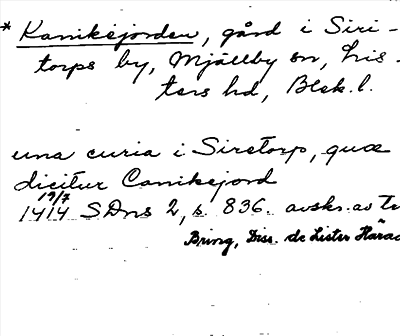 * Kanikejorden, gård i Siri-
torps by, Mjällby sn, Lis-
ters hd, Blek. l.
una curia i Siretorp, quæ
dicitur Canikejord
19/7
1414 SDns 2, s. 836. avskr. av tr
Bring, Diss. de Lister Härad